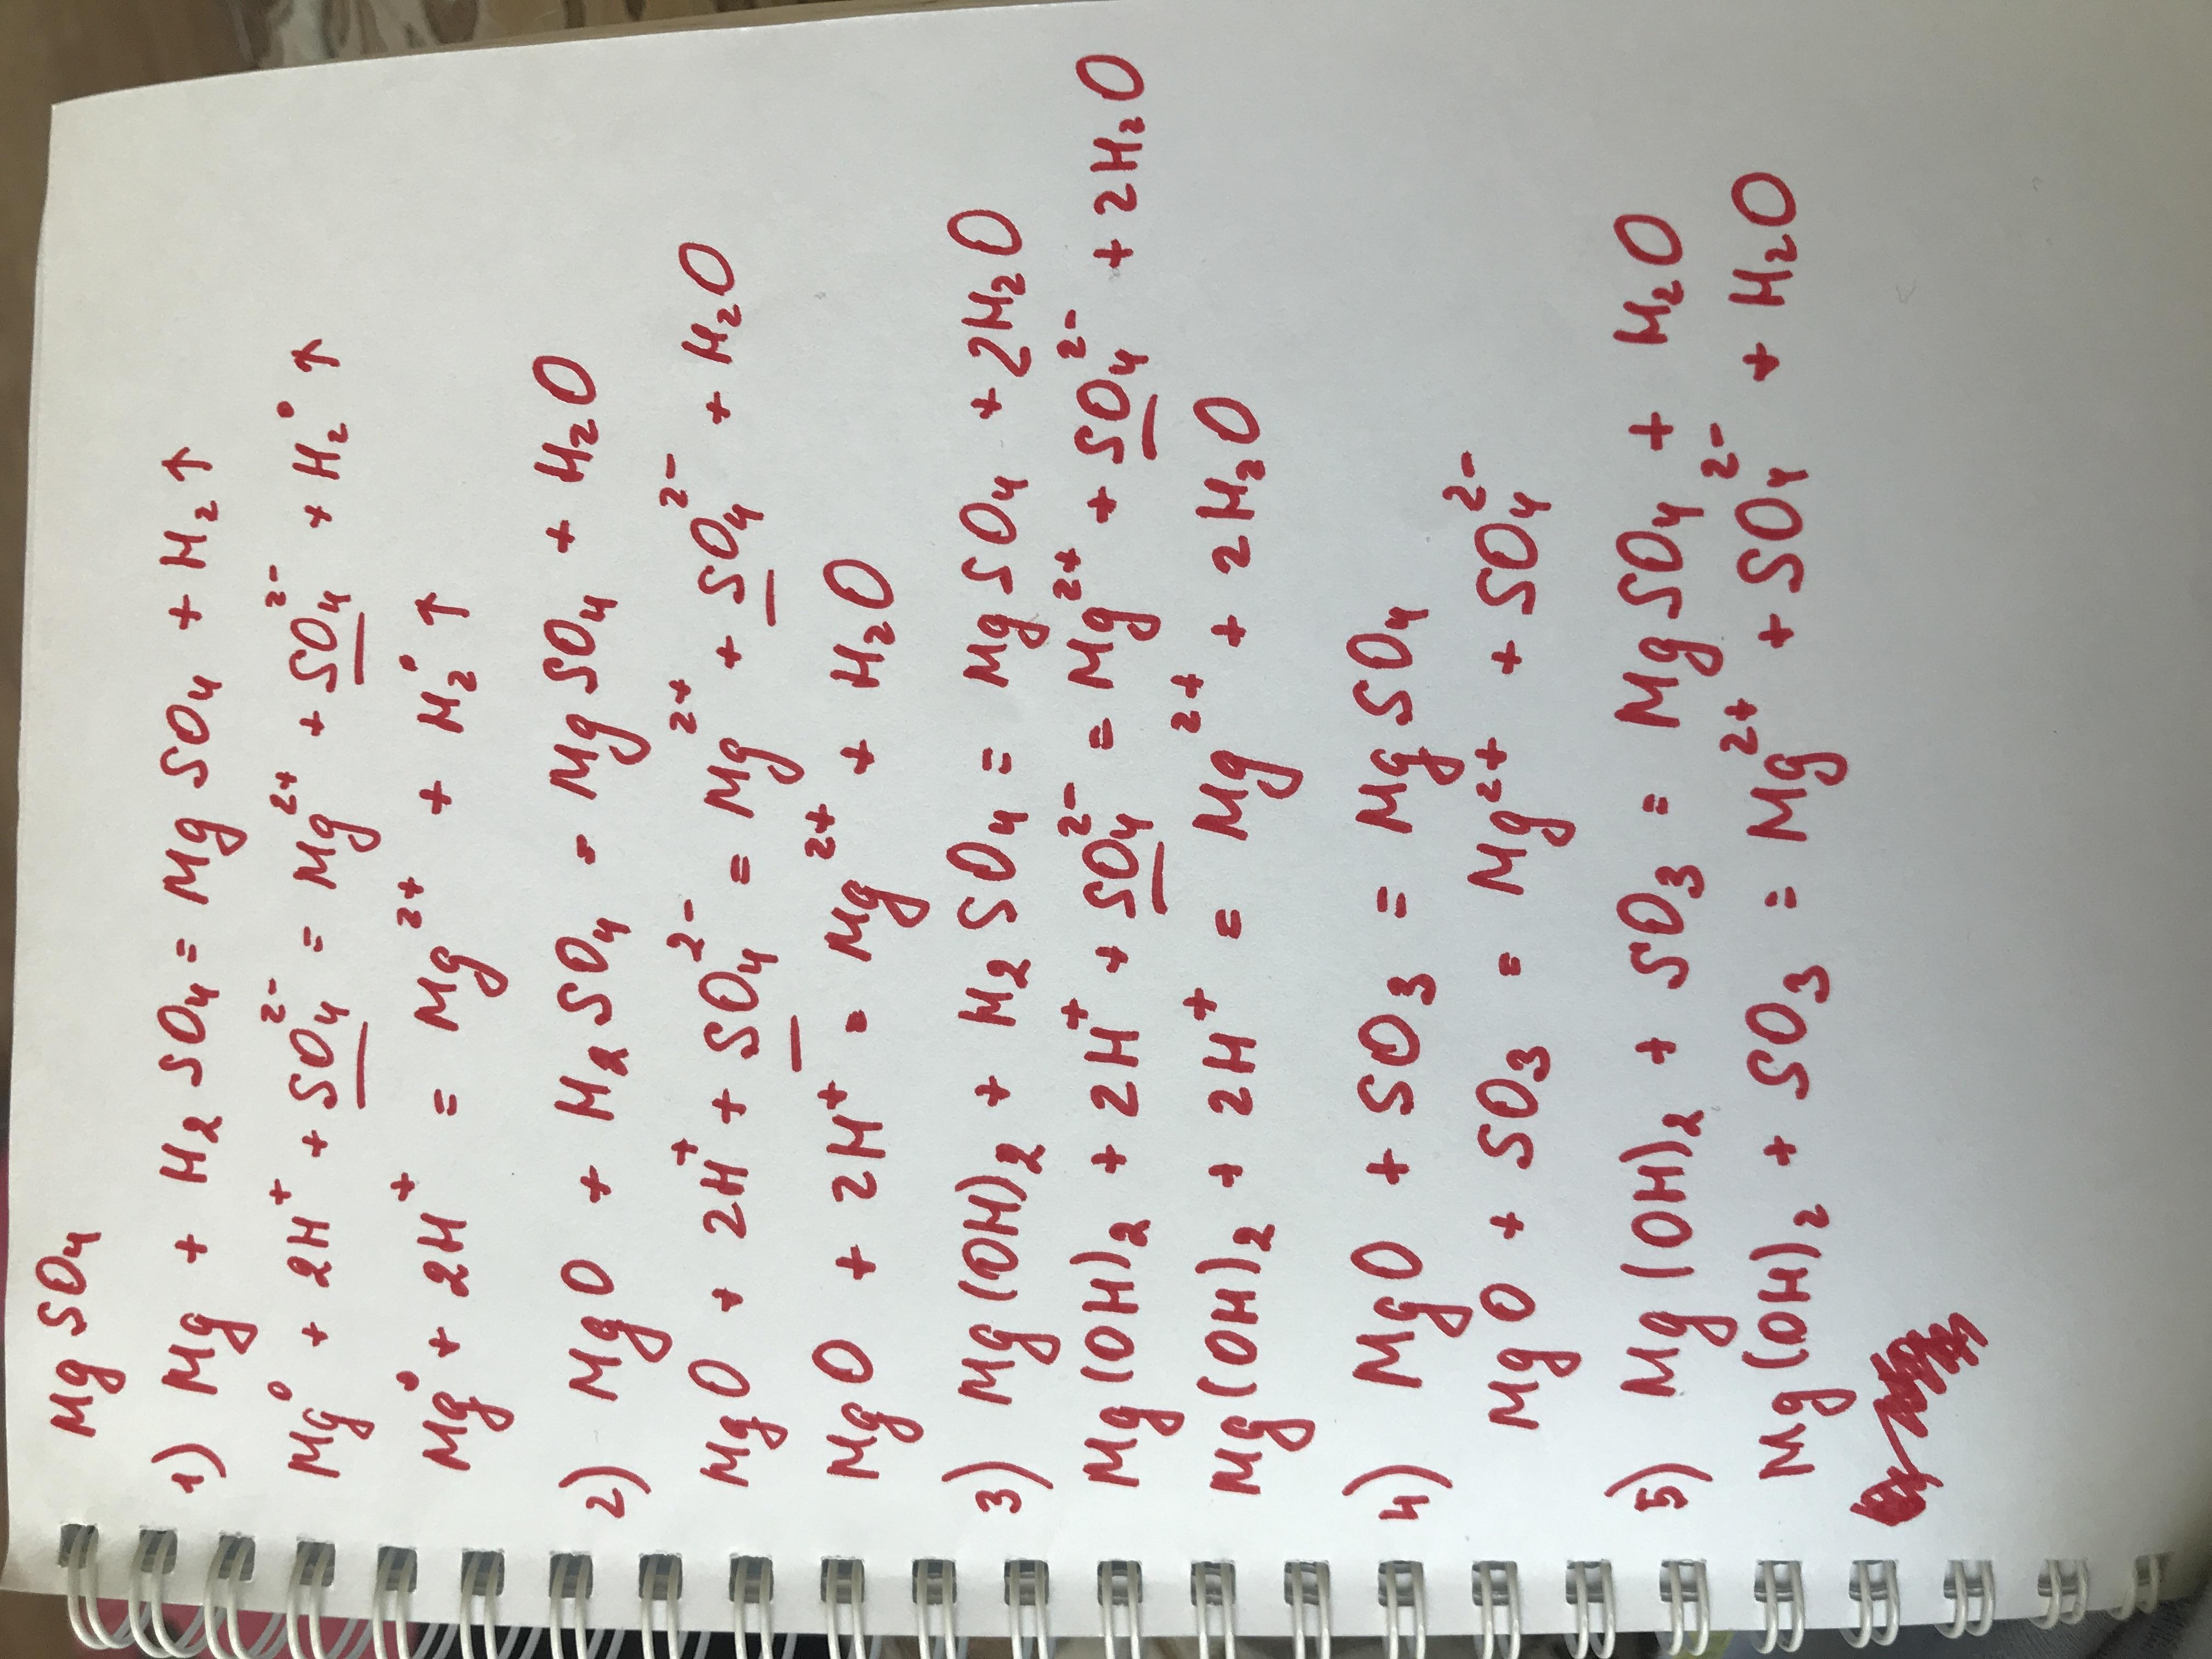 MgSO₄
1) Mg + H₂SO₄ = MgSO₄ + H₂↑
Mg⁰ + 2H⁺ + SO₄²⁻ = Mg²⁺ + SO₄²⁻ + H₂⁰↑
Mg⁰ + 2H⁺ = Mg²⁺ + H₂⁰↑
2) MgO + H₂SO₄ = MgSO₄ + H₂O
MgO + 2H⁺ + SO₄²⁻ = Mg²⁺ + SO₄²⁻ + H₂O
MgO + 2H⁺ = Mg²⁺ + H₂O
3) Mg(OH)₂ + H₂SO₄ = MgSO₄ + 2H₂O
Mg(OH)₂ + 2H⁺ + SO₄²⁻ = Mg²⁺ + SO₄²⁻ + 2H₂O
Mg(OH)₂ + 2H⁺ = Mg²⁺ + 2H₂O
4) MgO + SO₃ = MgSO₄
MgO + SO₃ = Mg²⁺ + SO₄²⁻
5) Mg(OH)₂ + SO₃ = MgSO₄ + H₂O
Mg(OH)₂ + SO₃ = Mg²⁺ + SO₄²⁻ + H₂O